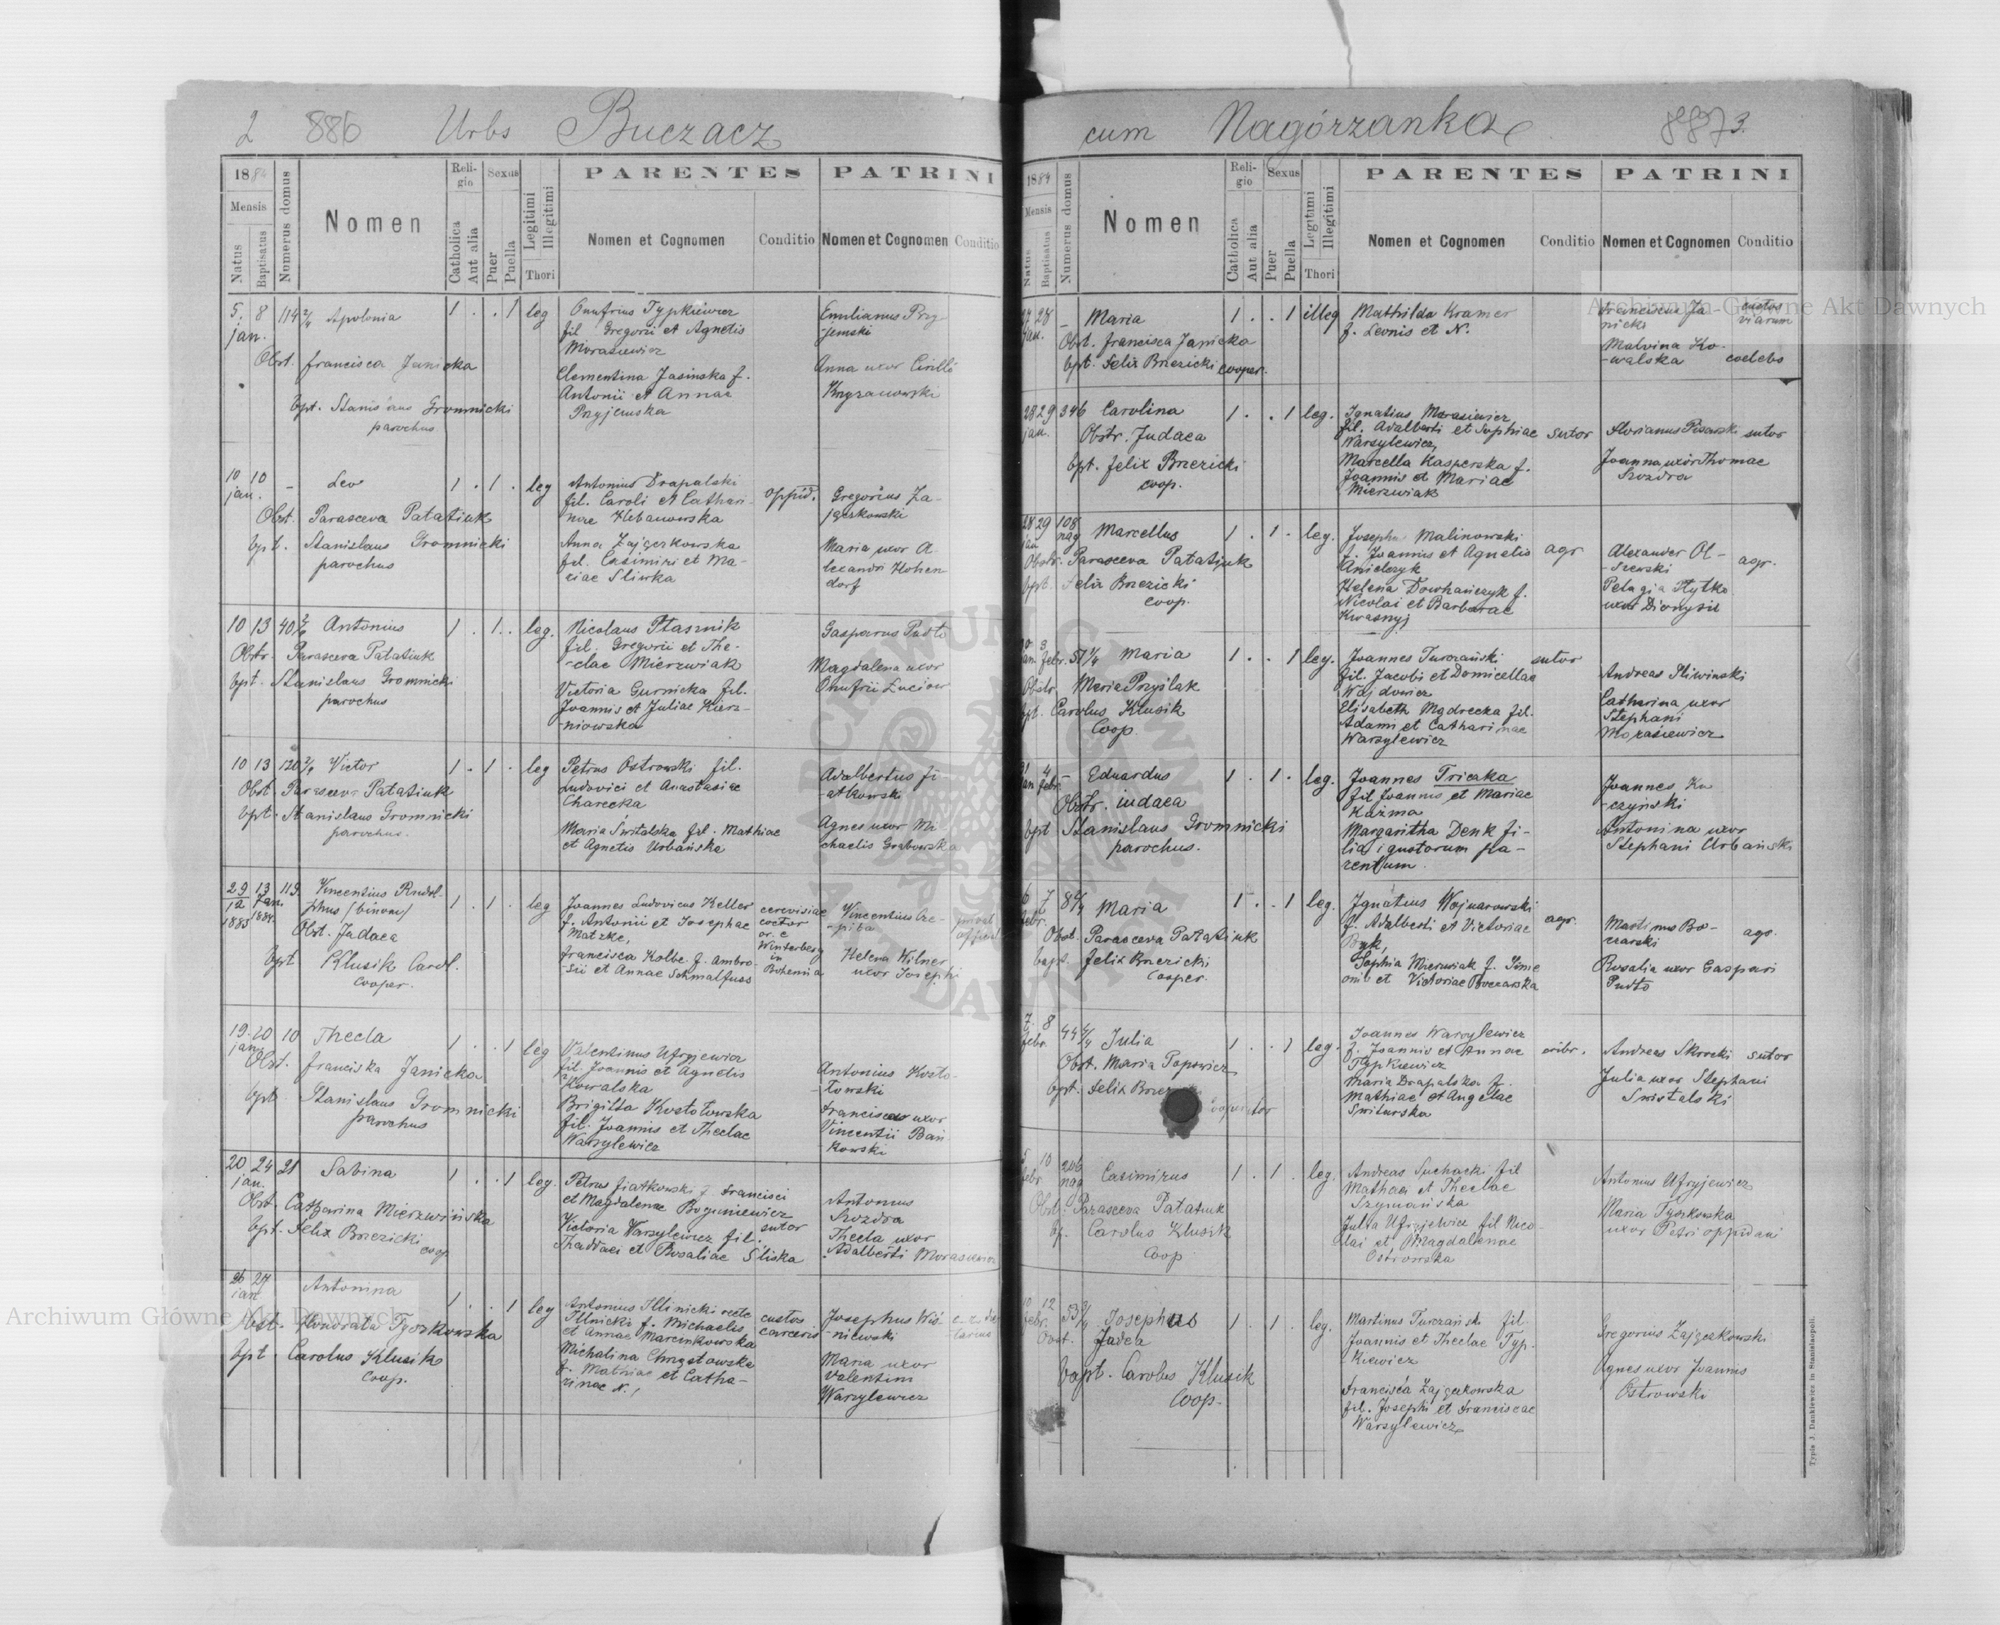 2 886 Urbs Buczacz
1884
Mensis
Natus
Baptisatus
Numerus domus
Nomen
Religio
Catholica
Aut alia
Sexus
Puer
Puella
Legitimi
Illegitimi
Thori
PARENTES
Nomen et Cognomen
Conditio
PATRINI
Nomen et Cognomen
Conditio
5. 8 114 Apolonia 1 . . 1 leg
jan.
Obst. Francisca Janicka
bpt. Stanislaus Gromnicki
parochus
Onufrius Typkiewicz
fil. Gregorii et Agnetis
Morasiewicz
Clementina Jasinska f.
Antonii et Annae
Pryjemska
Emilianus Pry-
-jemski
Anna uxor Cirilli
Kryzanowski
10 10 - Leo 1 . 1 . leg
jan.
Obst. Parasceva Patatiuk
bpt. Stanislaus Gromnicki
parochus
Antonius Drapalski
fil. Caroli et Cathari-
nae Klebanowska
oppid.
Anna Zajączkowska
fil. Casimiri et Ma-
riae Sliwka
Gregorius Za-
jączkowski
Maria uxor A-
lexandri Hohen
dorf
10 13 40 Antonius 1 . 1 . leg.
Obstr. Parasceva Patatiuk
bpt. Stanislaus Gromnicki
parochus
Nicolaus Ptasznik
fil. Gregorii et The-
-clae Mierzwiak
Victoria Gurnicka fil.
Joannis et Juliae Kierz-
-niowska
Gasparus Pudło
Magdalena uxor
Onufrii Luciow
10 13 120 Victor 1 . 1 . leg
Obst. Parasceva Patatiuk
bpt. Stanislaus Gromnicki
parochus.
Petrus Ostrowski fil.
Ludovici et Anastasiae
Charecka
Maria Świtalska fil. Mathiae
et Agnetis Urbańska
Adalbertus Fi-
-atkowski
Agnes uxor Mi-
chaelis Grabowska
29 13 113. Vincentius Rudol-
12 Jan. phus /binom/ 1 . 1 . leg
1883 1884.
Obst. Judaea
bpt Klusik Carol.
cooper.
Joannes Ludovicus Keller
f. Antonii et Josephae
Matzke,
Francisca Kolbe f. Ambro-
-sii et Annae Schmalfuss
cerevisiae
coctor
or. e
Winterberg
in
Bohemia
Vincentius Cze-
-piba
Helena Wilner
uxor Josephi
19. 20 10 Thecla 1 . . 1 leg
jan.
Obst. Franciska Janicka
bpt. Stanislaus Gromnicki
parochus
Valentinus Ufryjewicz
fil. Joannis et Agnetis
Kowalska
Brigitta Kostołowska
fil. Joannis et Theclae
Warsylewicz
Antonius Kosto-
-łowski
Francisca uxor
Vincentii Bań
kowski
20 24 21 Sabina 1 . . 1 leg.
jan.
Obst. Catharina Mierzwińska
bpt. Felix Brzezicki
coop
Petrus Fiatkowski f. Francisci
et Magdalenae Boguniewicz
sutor
Victoria Warsylewicz fil.
Thaddaei et Rosaliae Śliska
Antonius
Szozdra
Thecla uxor
Adalberti Morasiewicz
26 27 Antonina 1 . . 1 leg
jan
Obst. Honorata Tyszkowska
bpt. Carolus Klusik
Coop.
Antonius Illinicki recte
Illnicki f. Michaelis
et Annae Marcinkowska
Michalina Chrystowska
f. Mathiae et Catha-
rinae N.
custos
carceris
Josephus Wiś-
-niewski
Maria uxor
Valentini
Warsylewicz
cum Nagórzanka 887 3.
1884
Mensis
Natus
Baptisatus
Numerus domus
Nomen
Religio
Catholica
Aut alia
Sexus
Puer
Puella
Legitimi
Illegitimi
Thori
PARENTES
Nomen et Cognomen
Conditio
PATRINI
Nomen et Cognomen
Conditio
27 28 - Maria 1 . . 1 illeg
jan.
Obst. Francisca Janicka
bpt. Felix Brzezicki cooper.
Mathilda Kramer
f. Leonis et N.
Franciscus Ja
nicki
custos
viarum
Malvina Ko-
-walska coelebs
28 29 346 Carolina 1 . . 1 leg.
jan.
Obstr. Judaea
bpt. Felix Brzezicki
coop.
Ignatius Morasiewicz
fil. Adalberti et Sophiae sutor
Warsylewicz
Marcella Kasperska f.
Joannis et Mariae
Mierzwiak
Florianus Pisarski sutor
Joanna uxor Thomae
Szozdra
28 29 108 Marcellus 1 . 1 . leg.
jan nag
Obstr. Parasceva Patatiuk
bpt. Felix Brzezicki
coop.
Josephus Malinowski
f. Joannis et Agnetis agr
Anielczyk
Helena Dowhańczyk f.
Nicolai et Barbarae
Kwasnyj
Alexander Ol-
-szewski agr.
Pelagia Hytka
uxor Dionysii
3 febr. 51 Maria 1 . . 1 leg.
Obstr. Maria Przyślak
bpt. Carolus Klusik
Coop.
Joannes Turczański sutor
fil. Jacobi et Domicellae
Wajdowicz
Elisabeth Mądrecka fil.
Adami et Catharinae
Warsylewicz
Andreas Śliwinski
Catharina uxor
Stephani
Morasiewicz
4 - Eduardus 1 . 1 . leg.
jan febr.
Obstr. iudaea
bpt Stanislaus Gromnicki
parochus.
Joannes Triczka
fil Joannis et Mariae
Każma
Margaritha Denk fi-
lia ignotorum pa-
rentum.
Joannes Ku
-czyński
Antonina uxor
Stephani Urbański
6 7 8 Maria 1 . . 1 leg.
febr.
Obst. Parasceva Patatiuk
bapt. Felix Brzezicki
Cooper.
Ignatius Wojnarowski
f. Adalberti et Victoriae agr.
Byk,
Sophia Mierzwiak f. Sime
onis et Victoriae Boczarska
Martinus Bo-
czarski agr.
Rosalia uxor Gaspari
Pudło
7 8 44 Julia 1 . . 1 leg.
febr.
Obst. Maria Popowicz
bpt. Felix Brzez
cooperator
Joannes Warsylewicz
f. Joannis et Annae cribr.
Typkiewicz
Maria Drapalska f.
Mathiae et Angelae
Switurska
Andreas Skrocki sutor
Julia uxor Stephani
Świstelski
10 206 Casimirus 1 . 1 . leg.
febr nag
Obst. Parasceva Patatiuk
b. Carolus Klusik
Coop
Andreas Suchacki fil
Mathaei et Theclae
Szymańska
Julia Ufryjewicz fil Nico
lai et Magdalenae
Ostrowska
Antonius Ufryjewicz
Maria Tyszkowska
uxor Petri oppidani
10 12 53 Josephus 1 . 1 . leg.
febr.
Obst. Judea
bapt. Carolus Klusik
Coop.
Martinus Turczański fil.
Joannis et Theclae Typ-
kiewicz
Francisca Zajączkowska
fil. Josephi et Franciscae
Warsylewicz
Gregorius Zajączkowski
Agnes uxor Joannis
Ostrowski
Typis J. Dankiewicz in Stanislaopoli.
Archiwum Główne Akt Dawnych
Archiwum Główne Akt Dawnych
ARCHIWUM GŁÓWNE AKT DAWNYCH